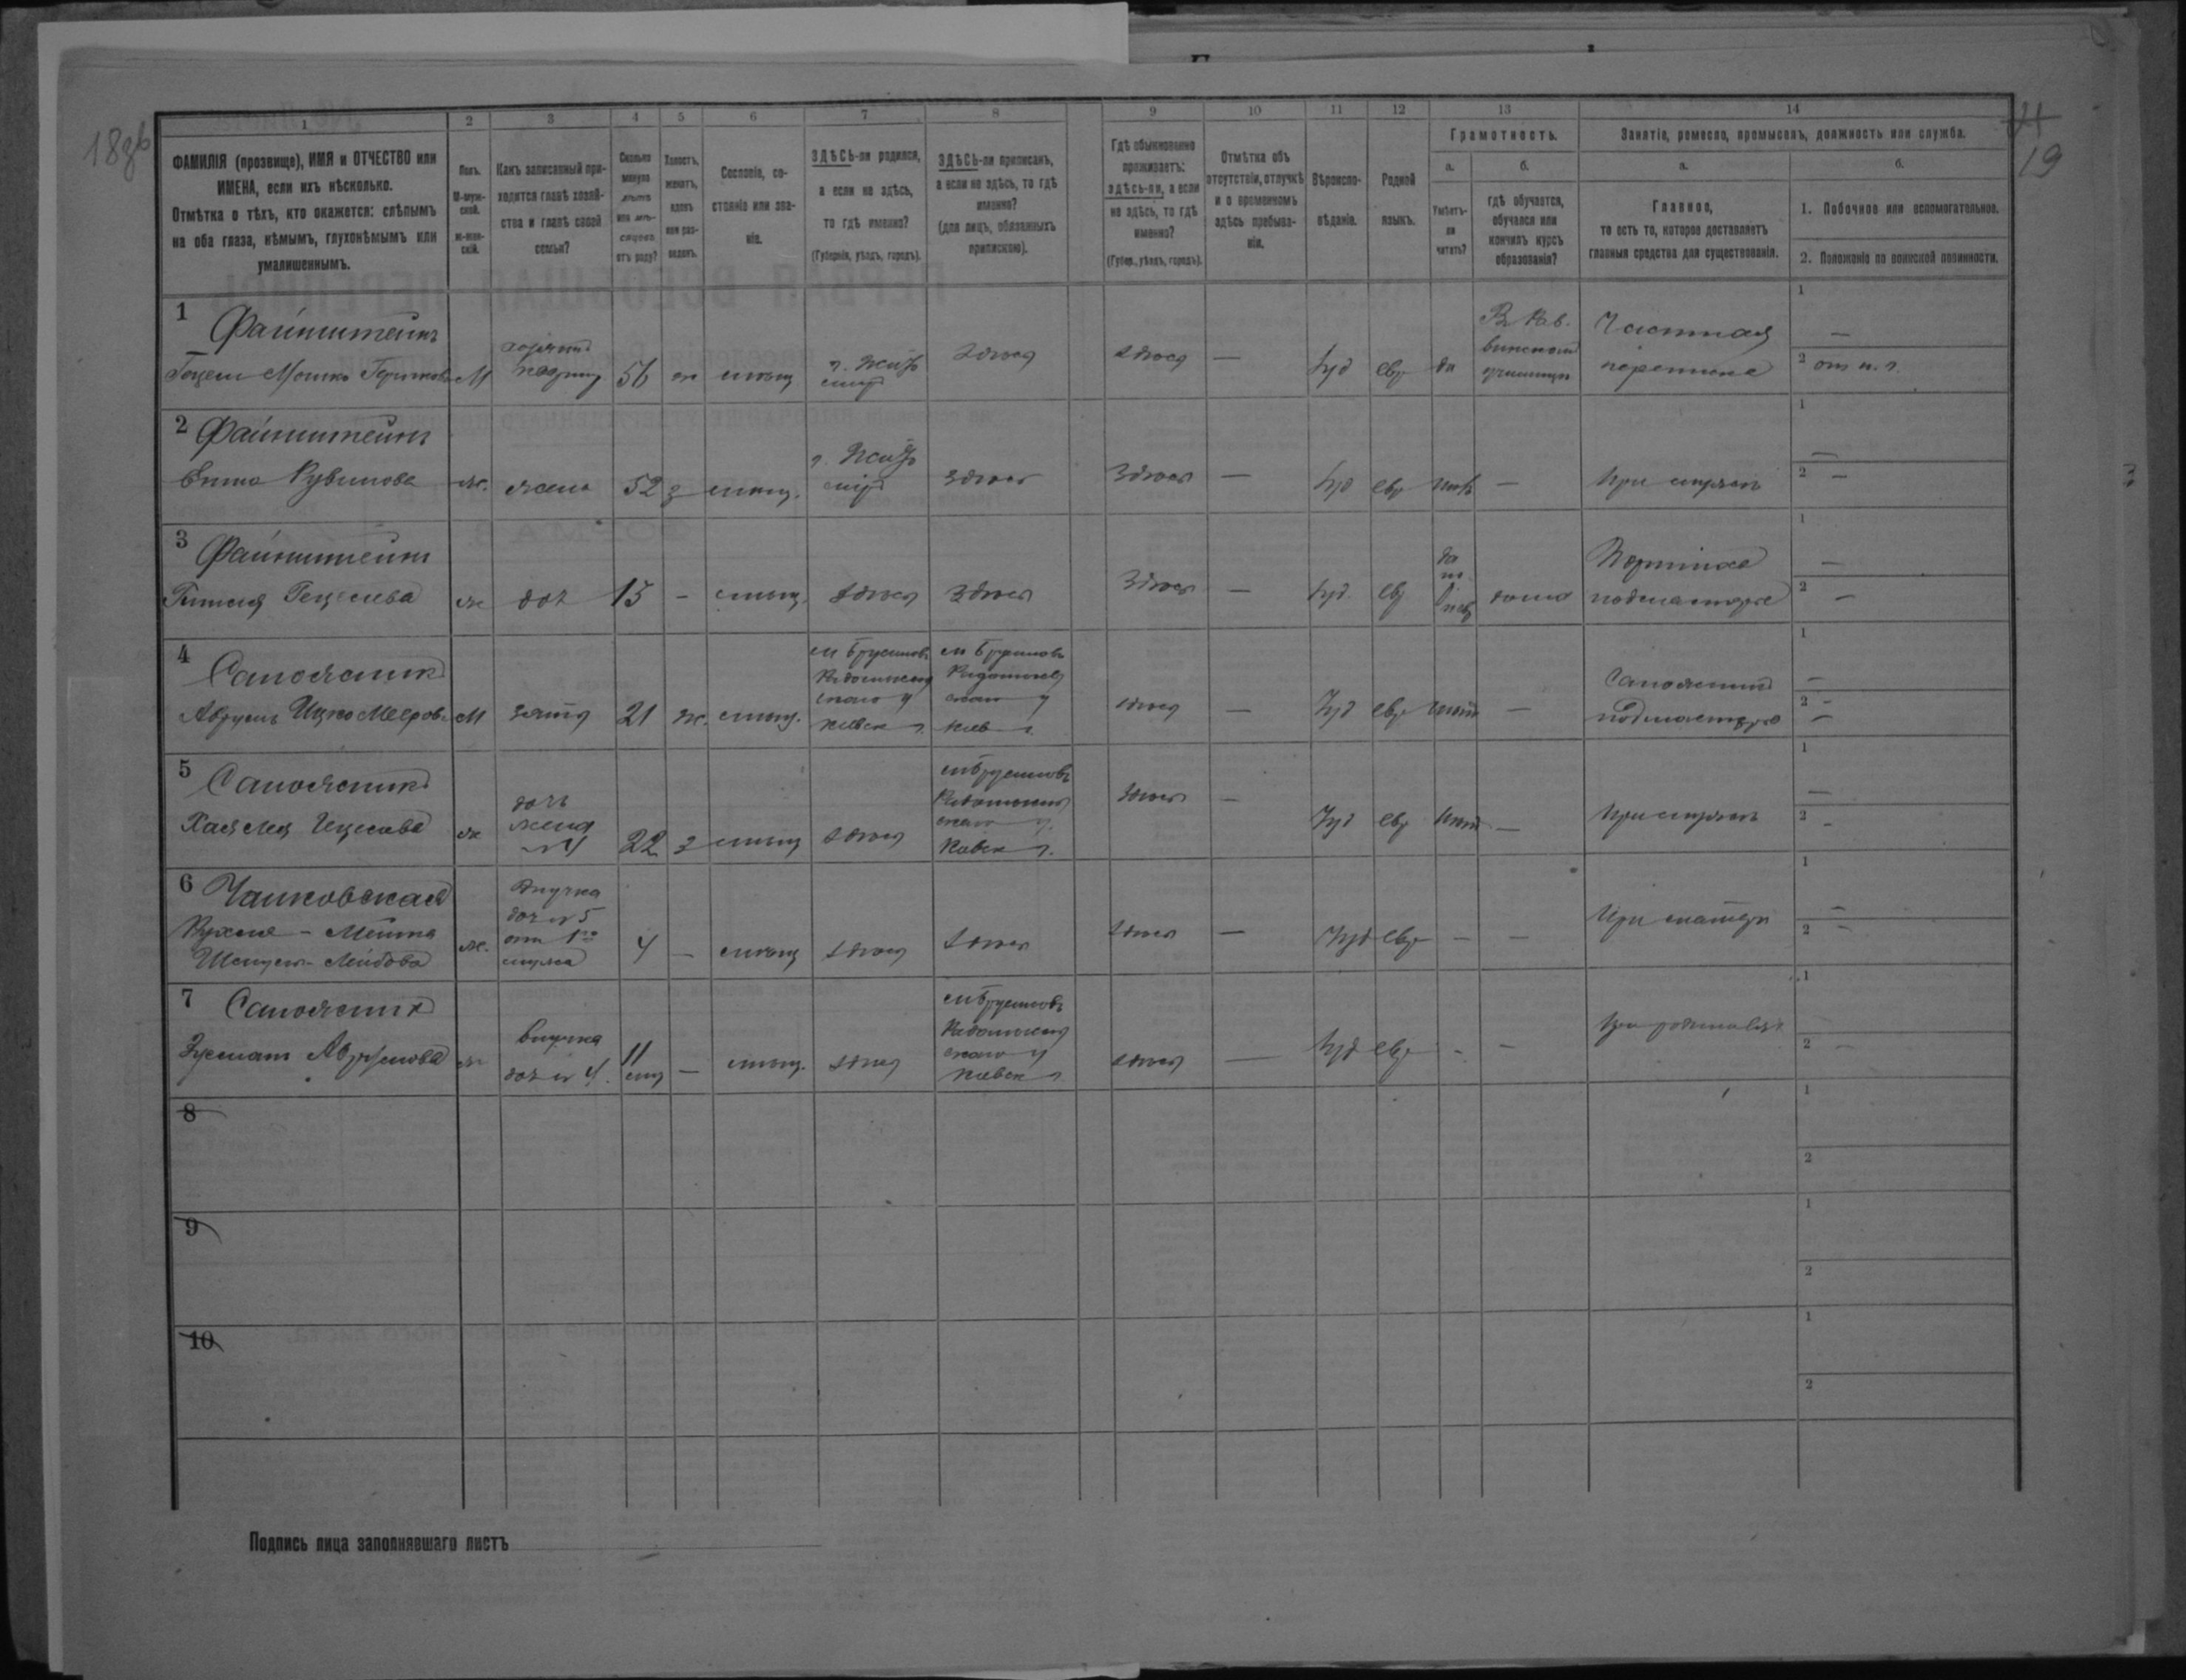 18об
19
1
2
3
4
5
6
7
8
9
10
11
12
13
14
ФАМИЛІЯ (прозвище), ИМЯ и ОТЧЕСТВО или
ИМЕНА, если ихъ нѣсколько.
Отмѣтка о тѣхъ, кто окажется: слѣпымъ
на оба глаза, нѣмымъ, глухонѣмымъ или
умалишеннымъ.
Полъ.
М-муж-
ской.
ж-жен-
скій.
Какъ записанный при-
ходится главѣ хозяй-
ства и главѣ своей
семьи?
Сколько
минуло
лѣтъ
или мѣ-
сяцевъ
отъ роду?
Холостъ,
женатъ,
вдовъ
или раз-
веденъ.
Сословіе, со-
стояніе или зва-
ніе.
ЗДѢСЬ-ли родился,
а если не здѣсь,
то гдѣ именно?
(Губернія, уѣздъ, городъ).
ЗДѢСЬ-ли приписанъ,
а если не здѣсь, то гдѣ
именно?
(для лицъ, обязанныхъ
припискою).
Гдѣ обыкновенно
проживаетъ:
здѣсь-ли, а если
не здѣсь, то гдѣ
именно?
(Губер., уѣздъ, городъ).
Отмѣтка объ
отсутствіи, отлучкѣ
и о временномъ
здѣсь пребыва-
ніи.
Вѣроиспо-
вѣданіе.
Родной
языкъ.
Грамотность.
а.
Умѣетъ-
ли
читать?
б.
гдѣ обучается,
обучался или
кончилъ курсъ
образованія?
Занятіе, ремесло, промыселъ, должность или служба.
а.
Главное,
то есть то, которое доставляетъ
главныя средства для существованія.
б.
1. Побочное или вспомогательное.
2. Положеніе по воинской повинности.
1
Файнштейнъ
Гецель Мошко
М
56
мѣщ
здѣсь
здѣсь
—
Іуд
евр
да
Частная
переписка
1 —
2
2
Файнштейнъ
Рувинова
ж.
жена
52
з
мѣщ.
здѣсь
здѣсь
—
Іуд
евр
нѣтъ
—
1 —
2 —
3
Файнштейнъ
Гецелева
ж
доч
15
—
мѣщ.
здѣсь
здѣсь
здѣсь
—
Іуд.
евр
да
по
дома
Портниха
подмастерье
1 —
2 —
4
Сапожник
Аврумъ Ицко Мееров.
М
зять
21
ж.
мѣщ.
м Брусиловъ
Радомысль
скаго у
Киевск г.
м Брусиловъ
Радомысль
скаго у
Киев г.
здѣсь
—
Іуд
евр
нѣтъ
—
Сапожник
подмастерье
1 —
2 —
5
Сапожник
Хая Лея Гецелева
ж
дочь
жена
№ 4
22
з
мѣщ
здѣсь
м Брусиловъ
Радомысль
скаго у.
Киевск г.
здѣсь
—
Іуд
евр
нѣтъ
—
1 —
2 —
6
Чайковская
ж.
Внучка
доч № 5
от 1го
мужа
4
—
мѣщ
здѣсь
здѣсь
здѣсь
—
Іуд
евр
—
—
При матери
1 —
2 —
7
Сапожник
Аврумова
ж
Внучка
доч № 4.
11
мѣс
—
мѣщ.
здѣсь
м Брусиловъ
Радомысль
скаго у
Киевск г
здѣсь
—
Іуд
евр
-
-
При родителях
1 —
2 —
8
1
2
9
1
2
10
1
2
Подпись лица заполнявшаго листъ